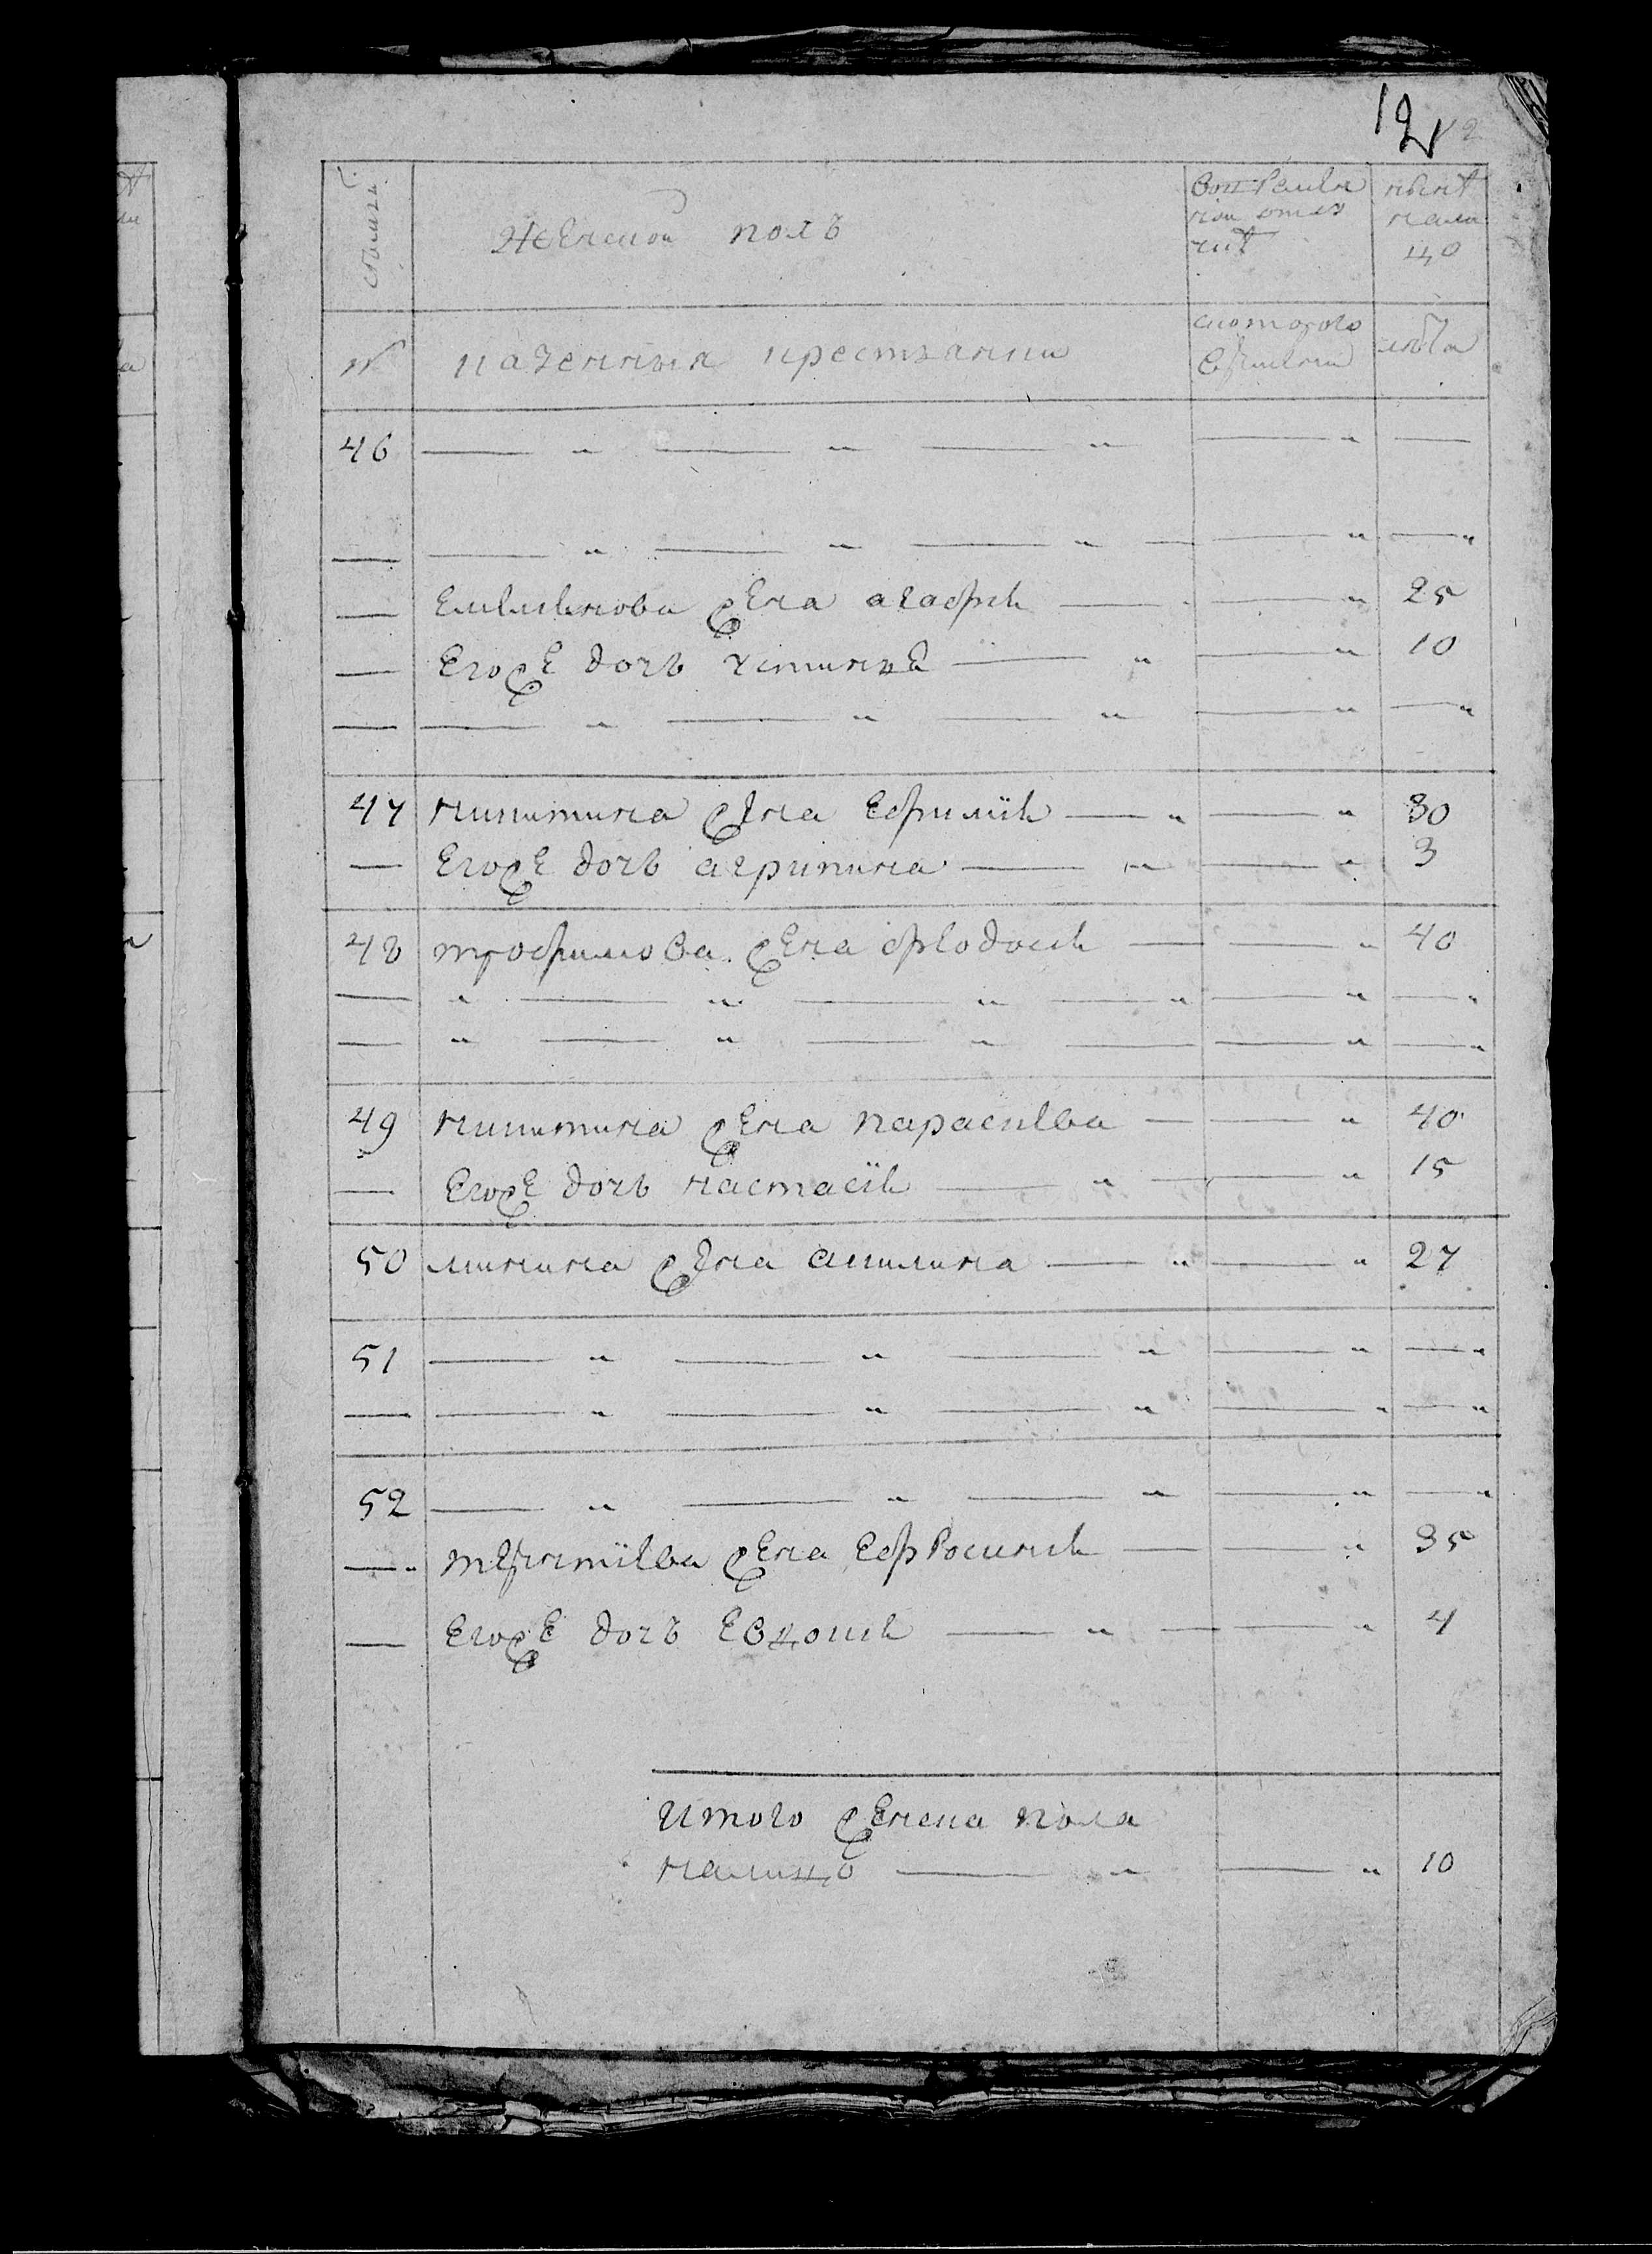 12 12
семьи
Женской полъ
во временной отлучке
ныне налицо
№
казенныя крестьянки
с которого времени
лета
46 — „ — „ — „ — „ —
— — „ — „ — „ — — „ — „
— Емельянова жена агафья — — „ 25
— Егоже дочь устинья — „ — „ 10
— — „ — „ — „ — „ — „
47 никитина жена Ефимiя — „ — „ 30
— Егоже дочь агрипина — „ — „ 3
48 трофимова жена феодосья — — „ 40
— „ — „ — „ — „ — „ — „
— „ — „ — „ — — „ — „
49 никитина жена параскева — — „ 40
— Егоже дочь настасiя — „ — — „ 15
50 минина жена акилина — „ — „ 27
51 — „ — „ — „ — „ — „
— — „ — „ — „ — „ — „
52 — „ — „ — „ — „ — „
— „ терентiева жена Ефросинья — — „ 35
— Егоже дочь Евдокия — „ — — „ 4
Итого женска пола
налицо — „ — „ 10